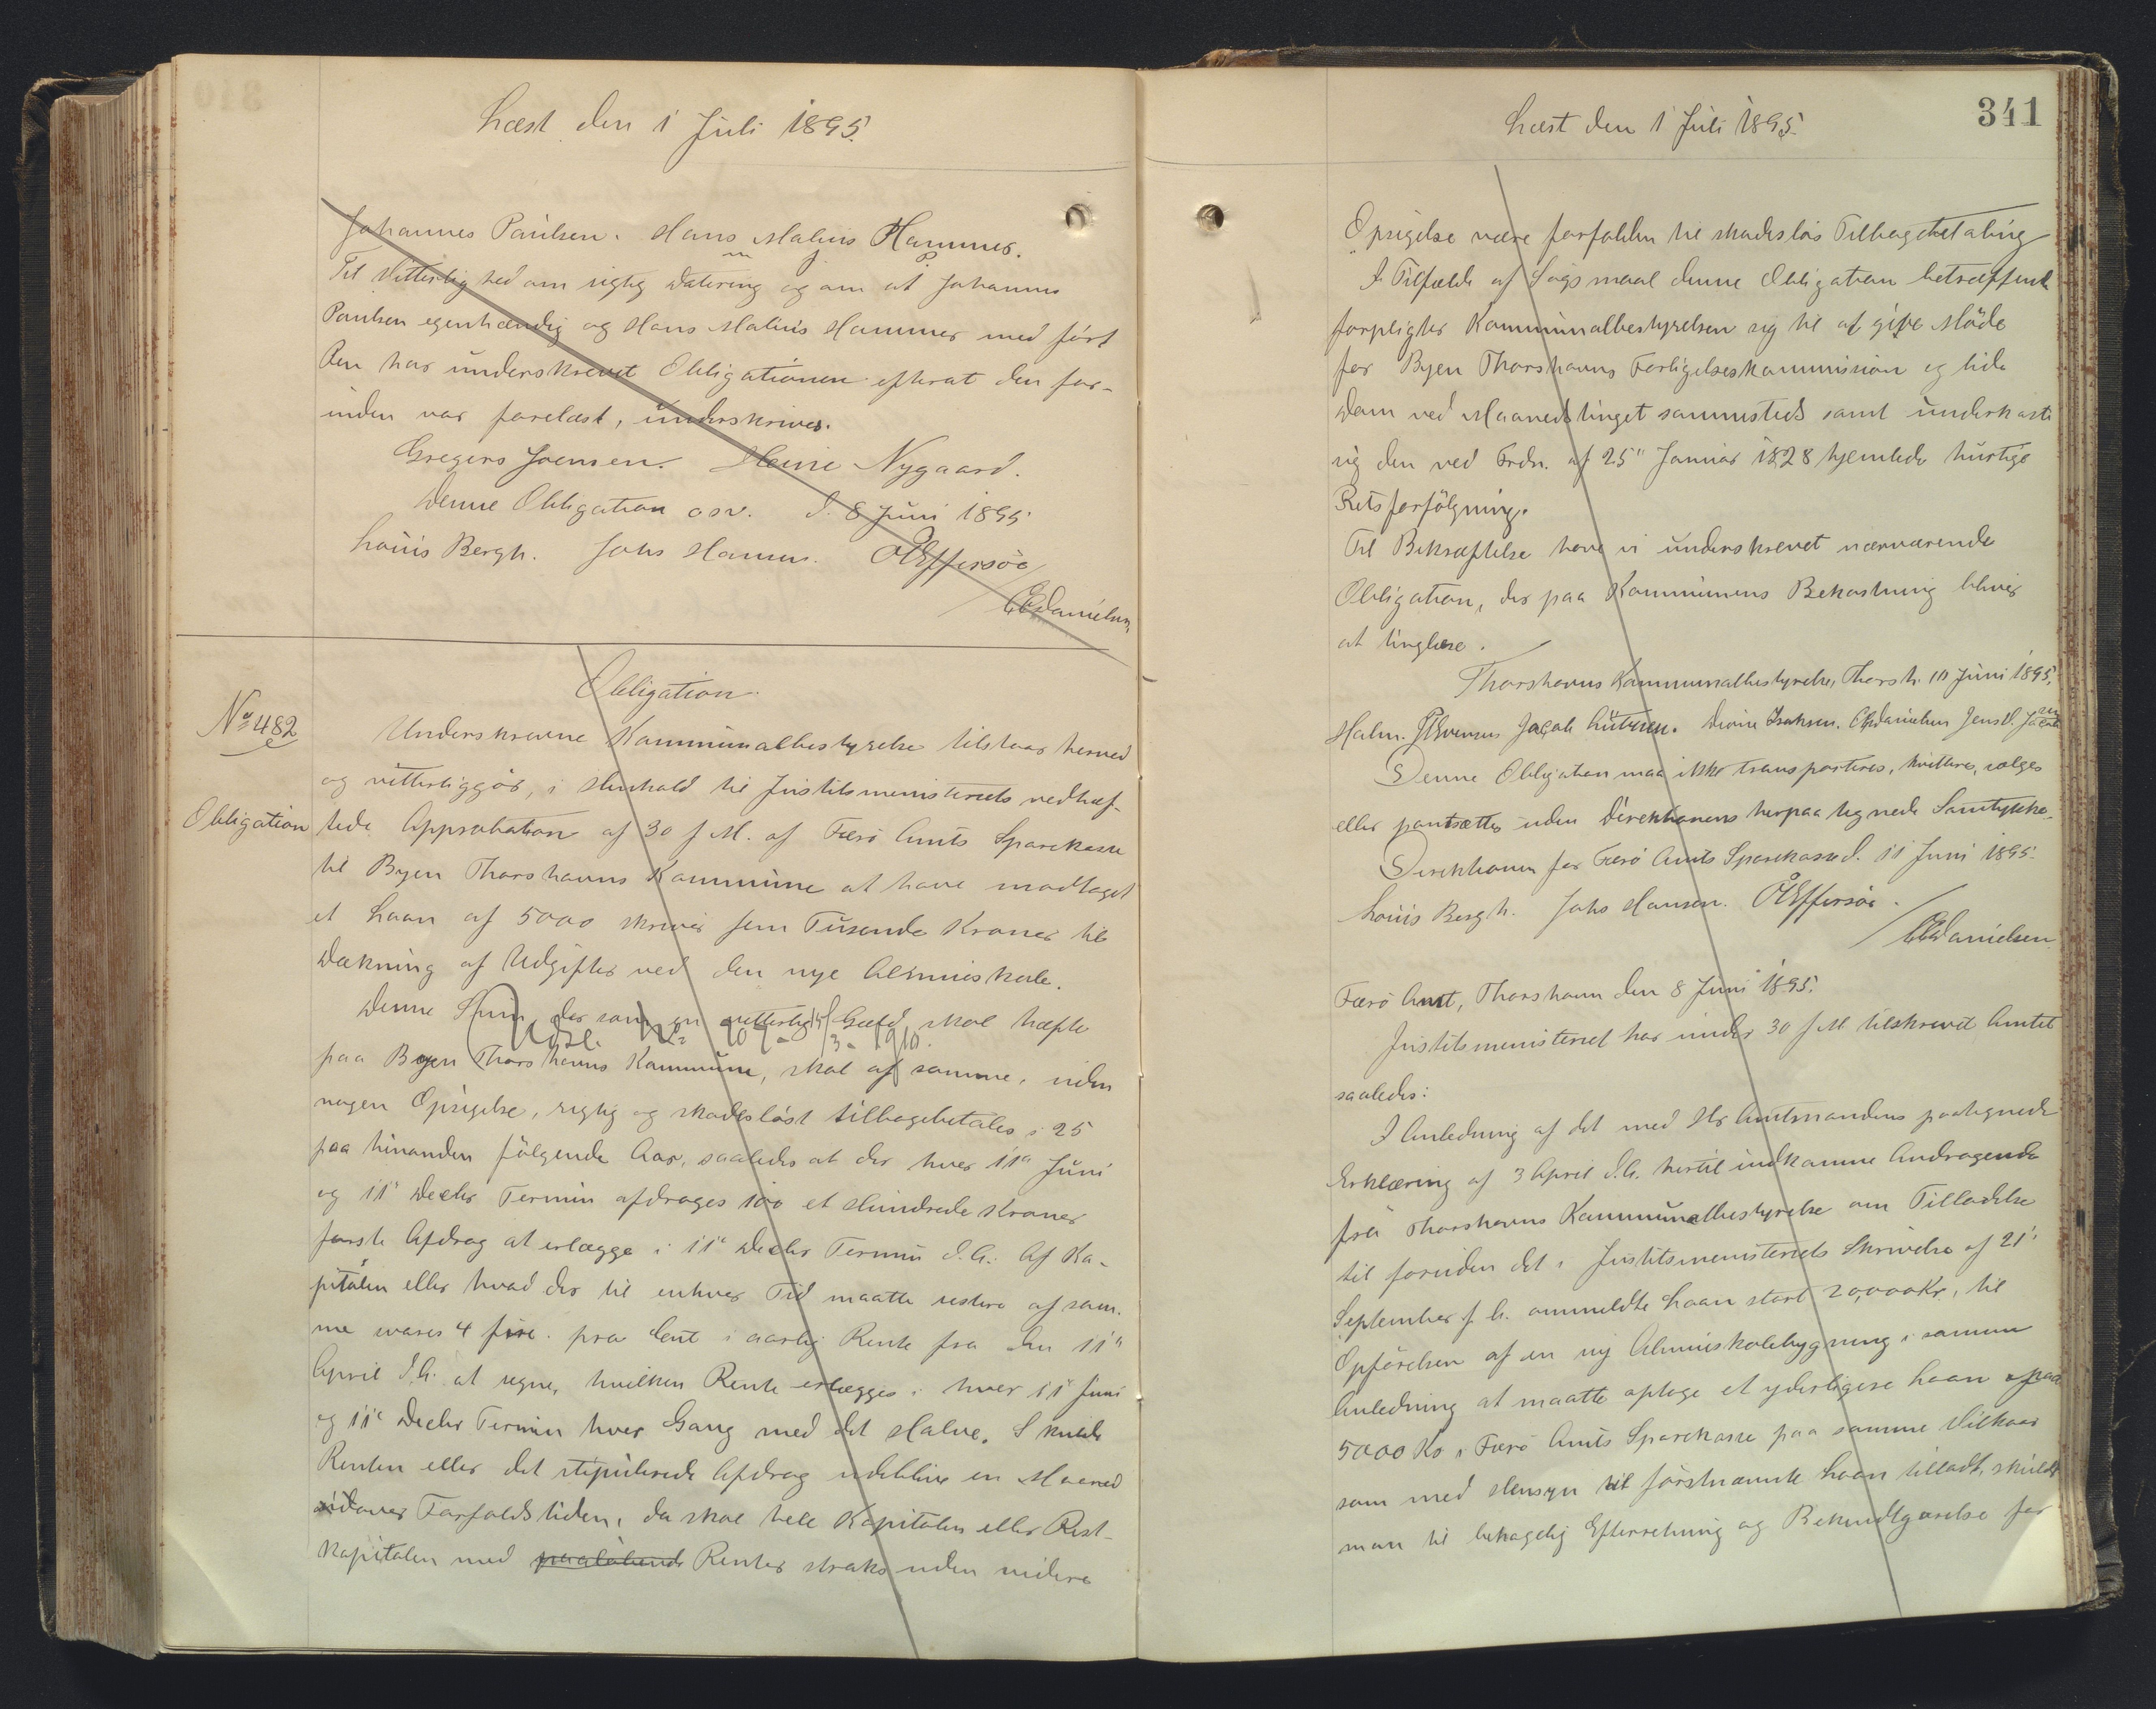 Læst den 1 Juli 1895.
Johannes Paulsen. Hans Malius Hammer.
Til Vitterlighed om rigtig Datering og om at Johannes
Paulsen egenhændig og Hans Malius Hammer med ført
Pen har underskrevet Obligationen efterat den for-
inden var forelæst, underskrives.
Gregers Joensen. Heine Nygaard.
Denne Obligation osv. d. 8 Juni 1895
Louis Bergh. Johs Hansen. OEffersöe
/CDanielsen
Obligation.
No 482
Underskrevne Kommunalbestyrelse tilstaar herved
og vitterliggör, i Henhold til Justitsministeriets vedhæf-
Obligation
tede Approbation af 30 f M. af Færö Amts Sparekasse
til Byen Thorshavns Kommune at have modtaget
et Laan af 5000 skriver fem Tusende Kroner til
Dækning af Udgifter ved den nye Almueskole.
Denne Sum, der som en vitterlig Gæld skal hæfte
Udsl. No 109 - 14/3 - 1910.
paa Byen Thorshavns Kommune, skal af samme, uden
nogen Opsigelse, rigtig og skadesløst tilbagebetales i 25
paa hinanden fölgende Aar, saaledes at der hver 11" Juni
og 11" Decbr Termin afdrages 100 et Hundrede Kroner
første Afdrag at erlægge i 11" Decbr Termin d.A. Af Ka-
pitalen eller hvad der til enhver Tid maatte restere af sam-
me svares 4 fire pro Cent i aarlig Rente fra den 11"
April d.A. at regne, hvilken Rente erlægges i hver 11" Juni
og 11" Decbr Termin hver Gang med det Halve. Skulde
Renten eller det stipulerede Afdrag udeblive en Maaned
udover Forfaldstiden, da skal hele Kapitalen eller Rest-
kapitalen med paaløbende Renter straks uden videre
Læst den 1 Juli 1895.
341
Opsigelse være forfalden til skadeslös Tilbagebetaling
I Tilfælde af Søgsmaal denne Obligation betræffende
forpligter Kommunalbestyrelsen sig til at give Möde
for Byen Thorshavns Forligelseskommission og lide
Dom ved Maanedstinget sammesteds samt underkaste
sig den ved Frdn. af 25" Januar 1828 hjemlede hurtige
Retsforfölgning.
Til Bekræftelse have vi underskrevet nærværende
Obligation, der paa Kommunens Bekostning bliver
at tinglæse.
Thorshavns Kommunalbestyrelse, Thorsh. 10 Juni 1895.
Halm. Jacob Lützen. Isaksen. CDanielsen Jens
Denne Obligation maa ikke transporteres, kvitteres, sælges
eller pantsættes uden Direktionens herpaa tegnede Samtykke.
Direktionen for Færö Amts Sparekasse d. 11 Juni 1895.
Louis Bergh. Johs Hansen. OEffersöe.
/CDanielsen
Færö Amt, Thorshavn den 8 Juni 1895.
Justitsministeriet har under 30 f M tilskrevet Amtet
saaledes:
I Anledning af det med Hr Amtmandens paategnede
Erklæring af 3 April d.A. hertil indkomne Andragende
fra Thorshavns Kommunalbestyrelse om Tilladelse
til foruden det i Justitsministeriets Skrivelse af 21'
September f. A. ommeldte Laan stort 20,000 Kr, til
Opförelsen af en ny Almueskolebygning i samme
Anledning at maatte optage et yderligere Laan paa
5000 Kr i Færö Amts Sparekasse paa samme Vilkaar
som med Hensyn til förstnævnte Laan tilladt, skulde
man til behagelig Efterretning og Bekendtgørelse for